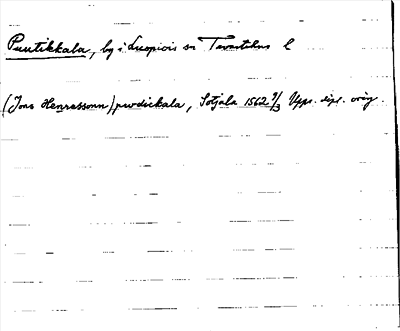 Puutikkala, by i Luopiois sn Tavastehus l
(Jons Henrssonn) pwdickala, Sotjala 1562 9/3 Upps. dipl. orig.